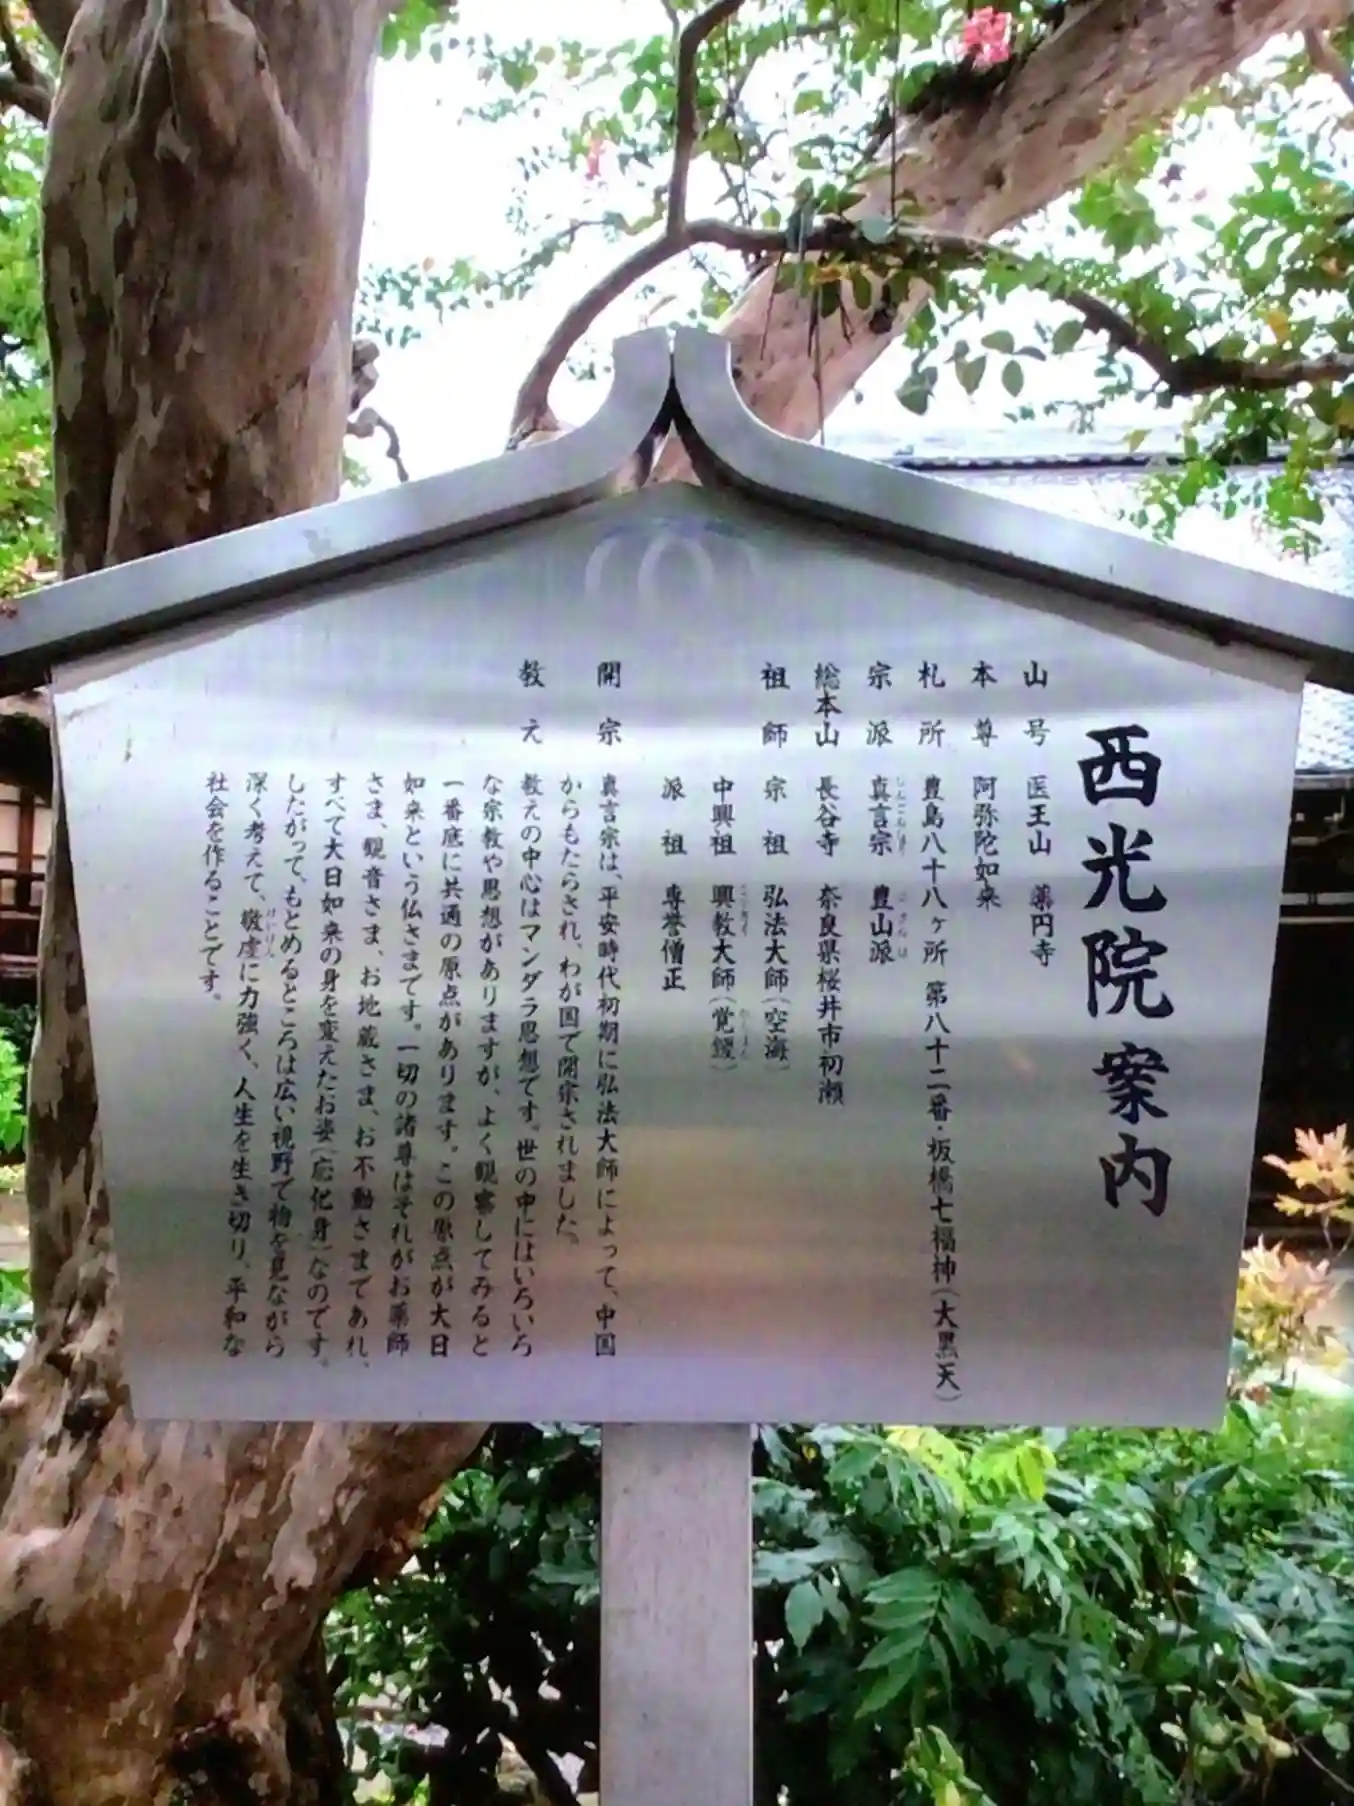 西光院案内
山号 医王山 薬円寺
本尊 阿弥陀如来
札所 豊島八十八ヶ所 第八十二番・板橋七福神（大黒天）
宗派 真言宗 豊山派
総本山 長谷寺 奈良県桜井市初瀬
祖師 宗祖 弘法大師（空海）
中興祖 興教大師（覚鑁）
派祖 専誉僧正
開宗 真言宗は、平安時代初期に弘法大師によって、中国
からもたらされ、わが国で開宗されました。
教え 教えの中心はマンダラ思想です。世の中にはいろいろ
な宗教や思想がありますが、よく観察してみると
一番底に共通の原点があります。この原点が大日
如来という仏さまです。一切の諸尊はそれがお薬師
さま、観音さま、お地蔵さま、お不動さまであれ、
すべて大日如来の身を変えたお姿（応化身）なのです。
したがって、もとめるところは広い視野で物を見ながら
深く考えて、敬虔に力強く、人生を生き切り、平和な
社会を作ることです。